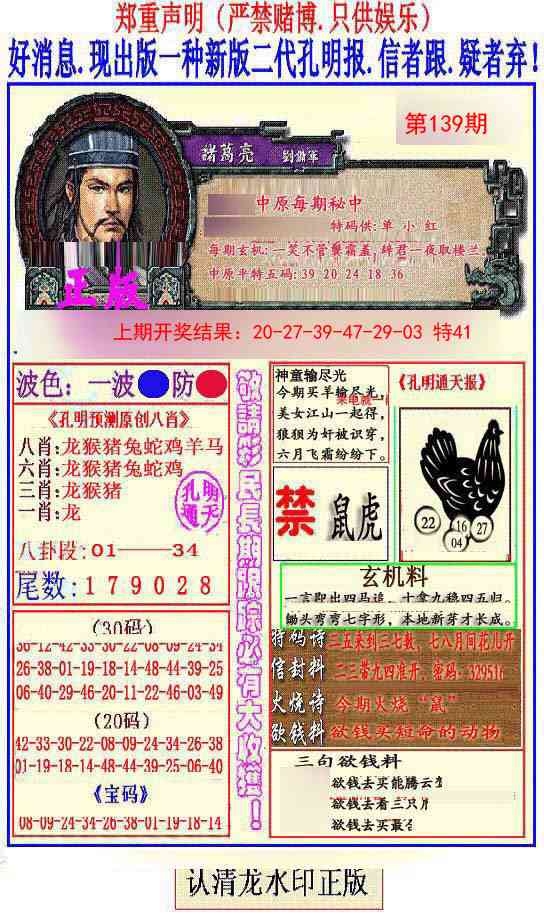 郑重声明（严禁赌博.只供娱乐）
好消息.现出版一种新版二代孔明报.信者跟.疑者弃！
第139期
諸葛亮 劉備軍
中原每期秘中
特码供:单 小 红
每期玄机:一笑不管爨霜盖,辞君一夜取楼兰.
中原平特五码:39 20 24 18 36
正版
上期开奖结果：20-27-39-47-29-03 特41
波色：一波 防
《孔明预测原创八肖》
八肖:龙猴猪兔蛇鸡羊马
六肖:龙猴猪兔蛇鸡
三肖:龙猴猪
一肖:龙
孔明
通天
八卦段:01——34
尾数:179028
(30码)
30-12-42-33-30-22-08-09-24-34
26-38-01-19-18-14-48-44-39-25
06-40-29-46-20-11-22-46-03-49
(20码)
42-33-30-22-08-09-24-34-26-38
01-19-18-14-48-44-39-25-06-40
《宝码》
08-09-24-34-26-38-01-19-18-14
敬請彩民長期跟踪必有大收獲！
神童输尽光
今期买羊输尽光,
美女江山一起得,
狼狈为奸被识穿,
六月飞霜纷纷下。
禁 鼠虎
《孔明通天报》
22
16
27
04
玄机料
一言即出四马追，十拿九稳四五归。
锄头弯弯七字形，本地新芽才长成。
特码诗 三五来到三七数，七八月间花儿开
信封料 二三带九四准开，密码：329516
火烧诗 今期火烧“鼠”
欲钱料 欲钱买短命的动物
三句欲钱料
欲钱去买能腾云
欲钱去看三只
欲钱去买最
认清龙水印正版